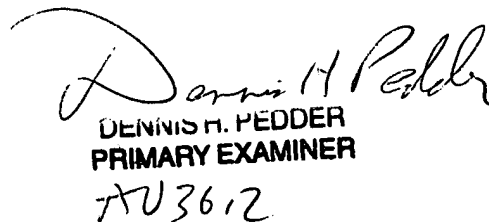 Dennis H Pedder
DENNIS H. PEDDER
PRIMARY EXAMINER
AU 3612